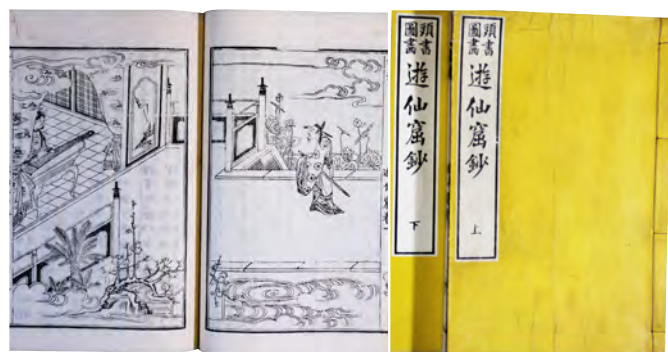 頭書
圖畫
遊仙窟鈔
上
頭書
圖畫
遊仙窟鈔
下